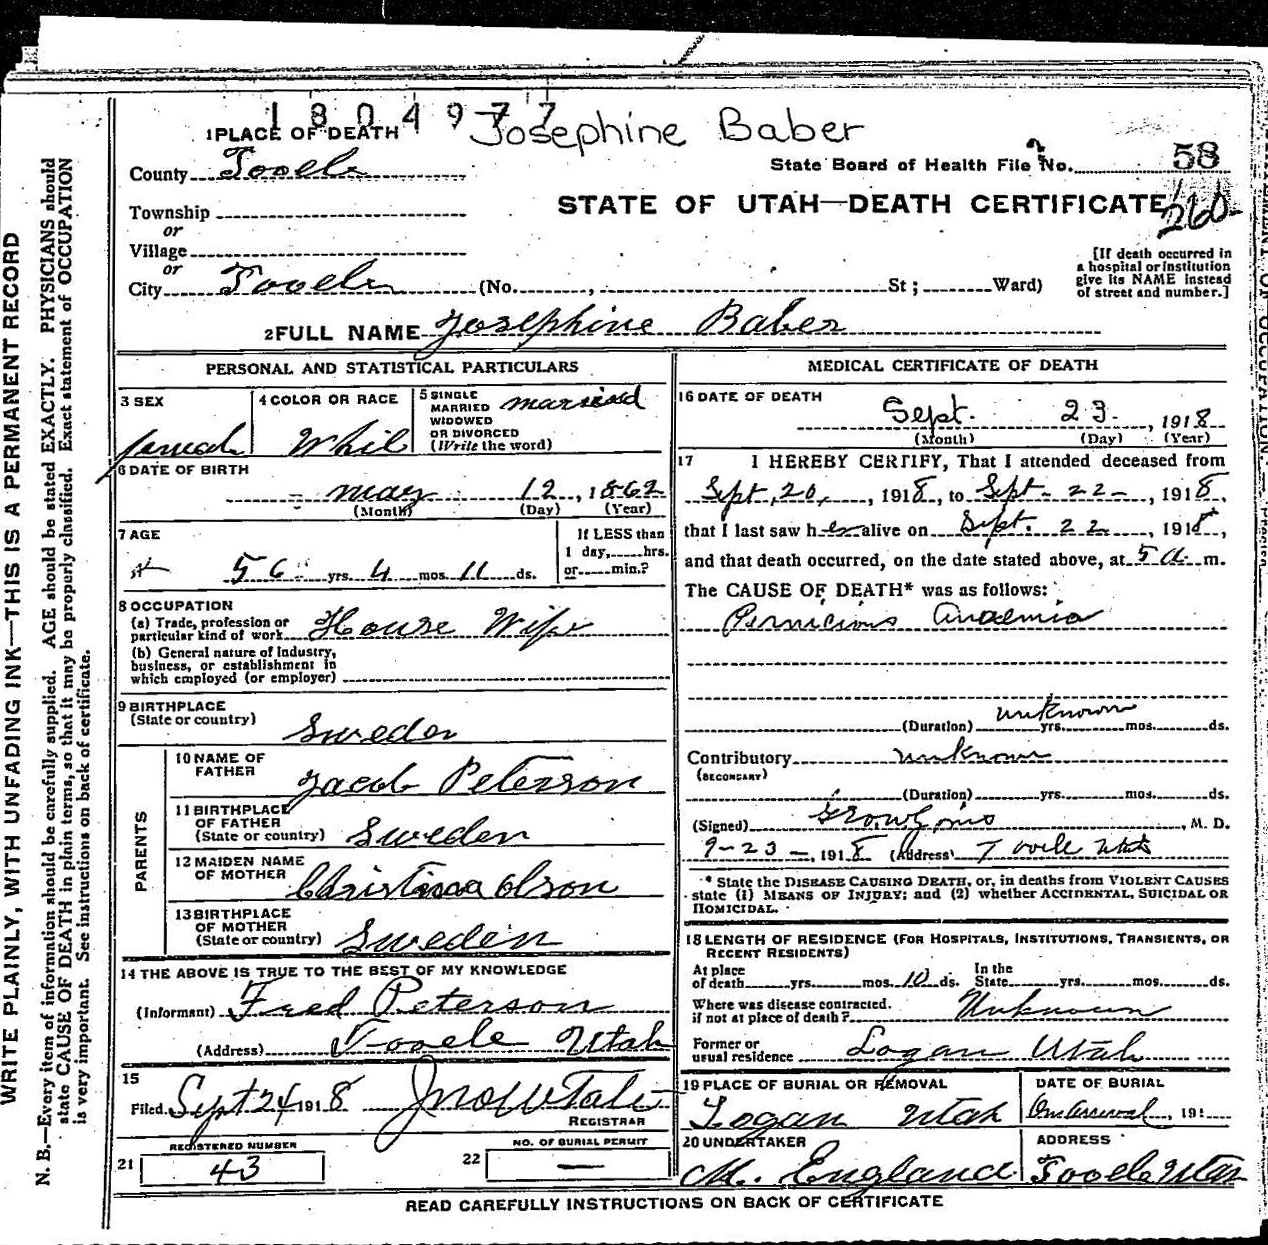 1804977 Josephine Baber
1 PLACE OF DEATH
County Tooele
State Board of Health File No. 58
Township
STATE OF UTAH—DEATH CERTIFICATE 260
or
Village
or
City Tooele (No. , St ; Ward)
[If death occurred in
a hospital or institution
give its NAME instead
of street and number.]
2 FULL NAME Josephine Baber
PERSONAL AND STATISTICAL PARTICULARS
3 SEX
female
4 COLOR OR RACE
White
5 SINGLE
MARRIED
WIDOWED
OR DIVORCED
(Write the word)
married
6 DATE OF BIRTH
May 12, 1862
(Month) (Day) (Year)
7 AGE
56 yrs. 4 mos. 11 ds.
If LESS than
1 day, hrs.
or min.?
8 OCCUPATION
(a) Trade, profession or
particular kind of work House Wife
(b) General nature of Industry,
business, or establishment in
which employed (or employer)
9 BIRTHPLACE
(State or country)
Sweden
PARENTS
10 NAME OF
FATHER
Jacob Peterson
11 BIRTHPLACE
OF FATHER
(State or country) Sweden
12 MAIDEN NAME
OF MOTHER
Christina Olson
13 BIRTHPLACE
OF MOTHER
(State or country) Sweden
14 THE ABOVE IS TRUE TO THE BEST OF MY KNOWLEDGE
(Informant) Fred Peterson
(Address) Tooele Utah
15
Filed Sept 24 1918 Jno W Tate
REGISTRAR
REGISTERED NUMBER
21 43
NO. OF BURIAL PERMIT
22 —
MEDICAL CERTIFICATE OF DEATH
16 DATE OF DEATH
Sept. 23, 1918
(Month) (Day) (Year)
17 I HEREBY CERTIFY, That I attended deceased from
Sept. 20, 1918, to Sept. 22, 1918,
that I last saw her alive on Sept. 22, 1918,
and that death occurred, on the date stated above, at 5 a m.
The CAUSE OF DEATH* was as follows:
Pernicious Anaemia
unknown
(Duration) yrs. mos. ds.
Contributory unknown
(SECONDARY)
(Duration) yrs. mos. ds.
(Signed) , M. D.
9-23-, 1918 (Address) Tooele Utah
* State the DISEASE CAUSING DEATH, or, in deaths from VIOLENT CAUSES
state (1) MEANS OF INJURY; and (2) whether ACCIDENTAL, SUICIDAL OR
HOMICIDAL.
18 LENGTH OF RESIDENCE (FOR HOSPITALS, INSTITUTIONS, TRANSIENTS, OR
RECENT RESIDENTS)
At place
of death yrs. mos. 10 ds. In the
State yrs. mos. ds.
Where was disease contracted.
if not at place of death? Unknown
Former or
usual residence Logan Utah
19 PLACE OF BURIAL OR REMOVAL
Logan Utah
DATE OF BURIAL
On arrival, 191
20 UNDERTAKER
M. England
ADDRESS
Tooele Utah
READ CAREFULLY INSTRUCTIONS ON BACK OF CERTIFICATE
WRITE PLAINLY, WITH UNFADING INK—THIS IS A PERMANENT RECORD
N. B.—Every item of information should be carefully supplied. AGE should be stated EXACTLY. PHYSICIANS should
state CAUSE OF DEATH in plain terms, so that it may be properly classified. Exact statement of OCCUPATION
is very important. See instructions on back of certificate.